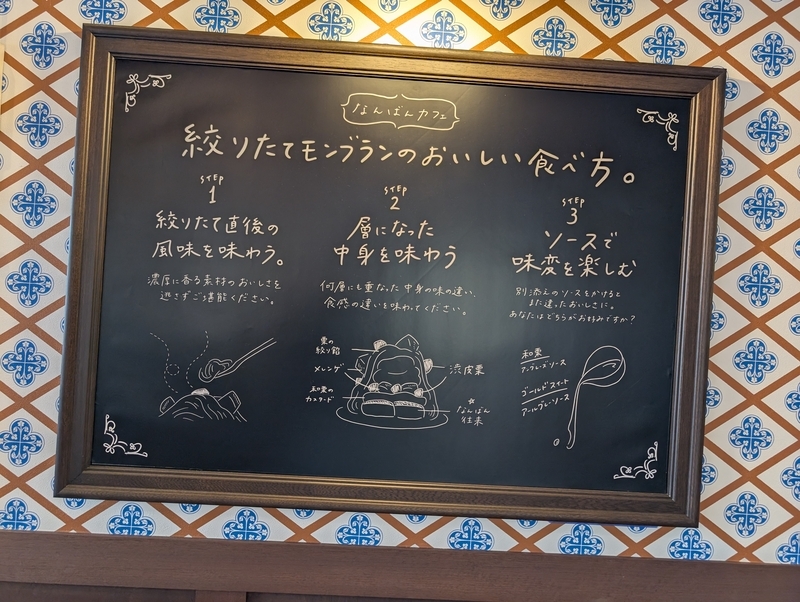 なんばんカフェ
絞りたてモンブランのおいしい食べ方。
STEP
1
絞りたて直後の
風味を味わう。
濃厚に香る素材のおいしさを
逃さずご堪能ください。
STEP
2
層になった
中身を味わう
何層にも重なった中身の味の違い、
食感の違いを味わってください。
栗の
絞り餡
メレンゲ
和栗の
カスタード
渋皮栗
なんばん
往来
STEP
3
ソースで
味変を楽しむ
別添えのソースをかけると
また違ったおいしさに。
あなたはどちらがお好みですか?
和栗
アングレーズソース
ゴールドスイート
アールグレーソース